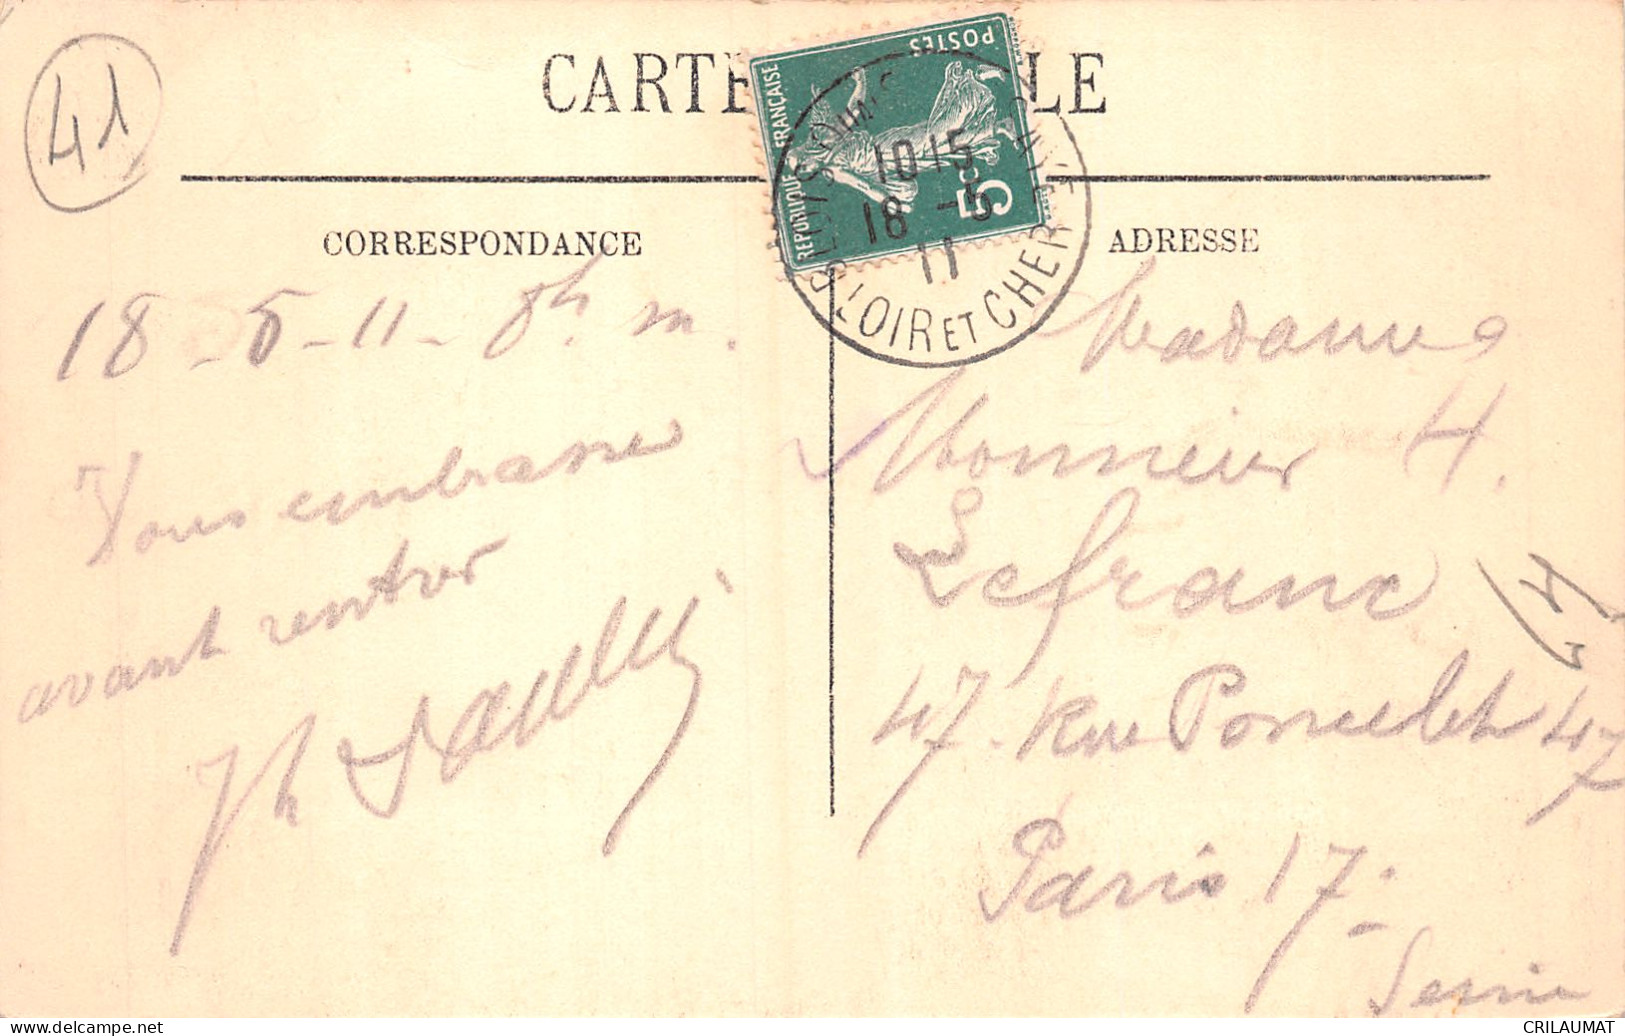 41
CARTE
LE
POSTES
REPUBLIQUE FRANÇAISE
5c
10 15
18 -5
11
LOIR ET CHER
CORRESPONDANCE
ADRESSE
18 - 5 - 11 - 8h m.
Vous embrasse
avant rentrer
Madame
Monnier H.
Lefranc
47. Rue Poncelet 47
Paris 17.
Seine
CRILAUMAT